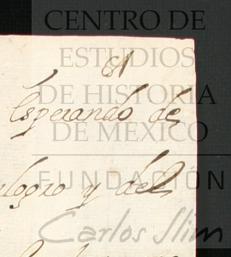 CENTRO DE
ESTUDIOS
DE HISTORIA
DE MEXICO
FUNDACIÓN
Carlos Slim
81
Esperando de
logro y del